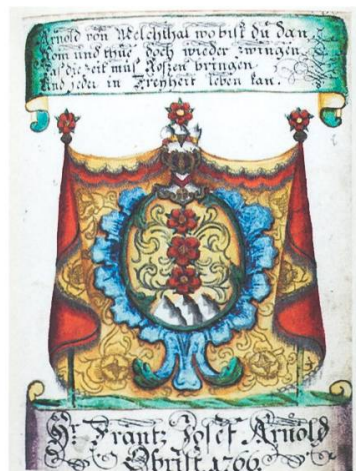 Arnold von Melchthal wo bist du dan,
Kom und thue doch wieder zwingen
Das die Zeit muß Roszen bringen
Und jeder in Freyheit leben kan.
Hr. Frantz Josef Arnold
1766